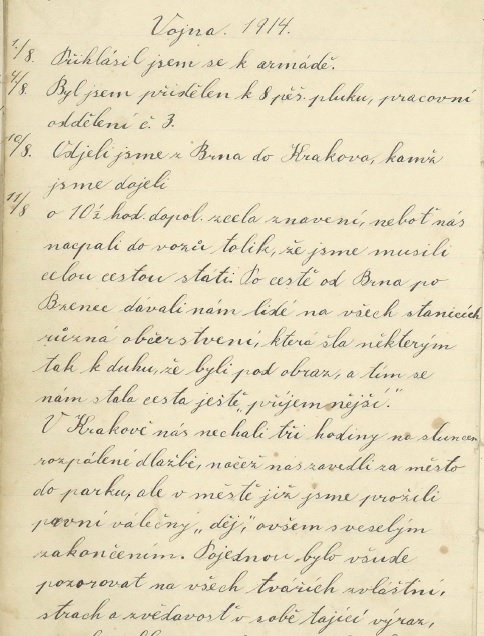 Vojna. 1914.
1/8. Přihlásil jsem se k armádě.
4/8. Byl jsem přidělen k 8 pěš. pluku, pracovní
oddělení č. 3.
10/8. Odjeli jsme z Brna do Krakova, kamž
jsme dojeli
11/8 o 10½ hod. dopol. zcela znavení, neboť nás
nacpali do vozů tolik, že jsme musili
celou cestou státi. Po cestě od Brna po
Bzenec dávali nám lidé na všech stanicích
různá občerstvení, která šla některým
tak k duhu, že byli pod obraz, a tím se
nám stala cesta ještě „příjemnější".
V Krakově nás nechali tři hodiny na sluncem
rozpálené dlažbě, načež nás zavedli za město
do parku, ale v městě již jsme prožili
první válečný „děj," ovšem s veselým
zakončením. Pojednou bylo všude
pozorovat na všech tvářích zvláštní,
strach a zvědavosť v sobě tající výraz,